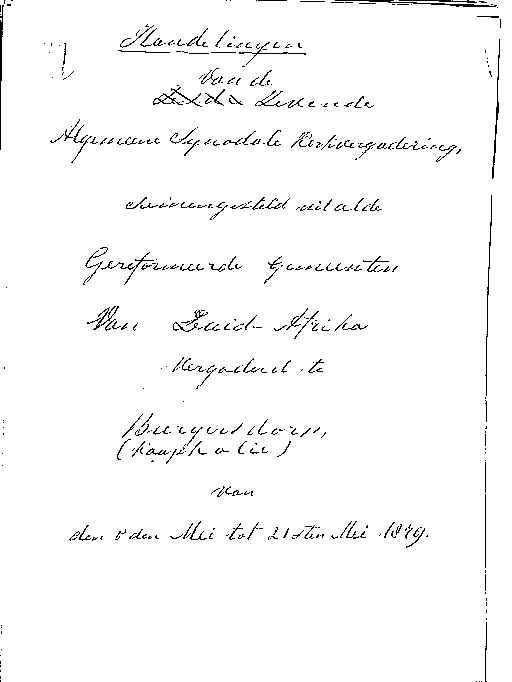 Handelingen
van de
Zesde Zevende
Algemeene Synodale Kerkvergadering,
uit al de
Gereformeerde Gemeenten
Van Zuid-Afrika
Vergaderd te
Burgersdorp,
(Kaapkolie)
van
den 5den Mei tot 21sten Mei 1879.